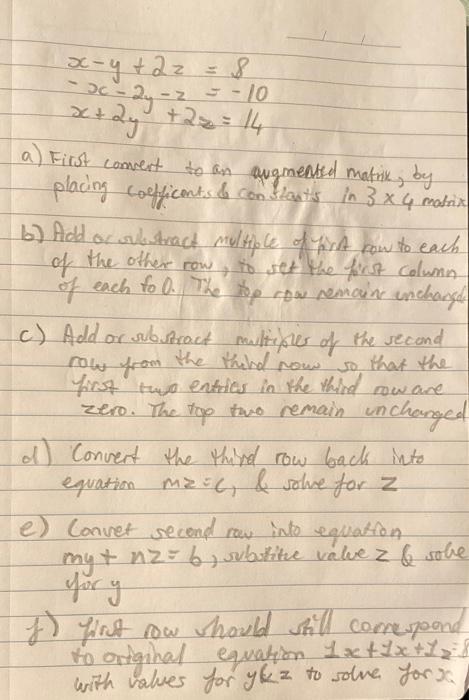 x - y + 2z = 8
-x - 2y - z = -10
x + 2y + 2z = 14
a) First convert to an augmented matrix, by
placing coefficents & constants in 3 x 4 matrix
b) Add or substract multiple of first row to each
of the other row, to set the first column
of each to 0. The top row remains unchanged
c) Add or substract multiples of the second
row from the third row so that the
first two entries in the third row are
zero. The top two remain unchanged
d) Convert the third row back into
equation mz = c, & solve for z
e) Convet second row into equation
my + nz = b, substitue value z & solve
for y
f) first row should still correspond
to original equation 1x + 1x + 1z = 8
with values for y & z to solve for x.